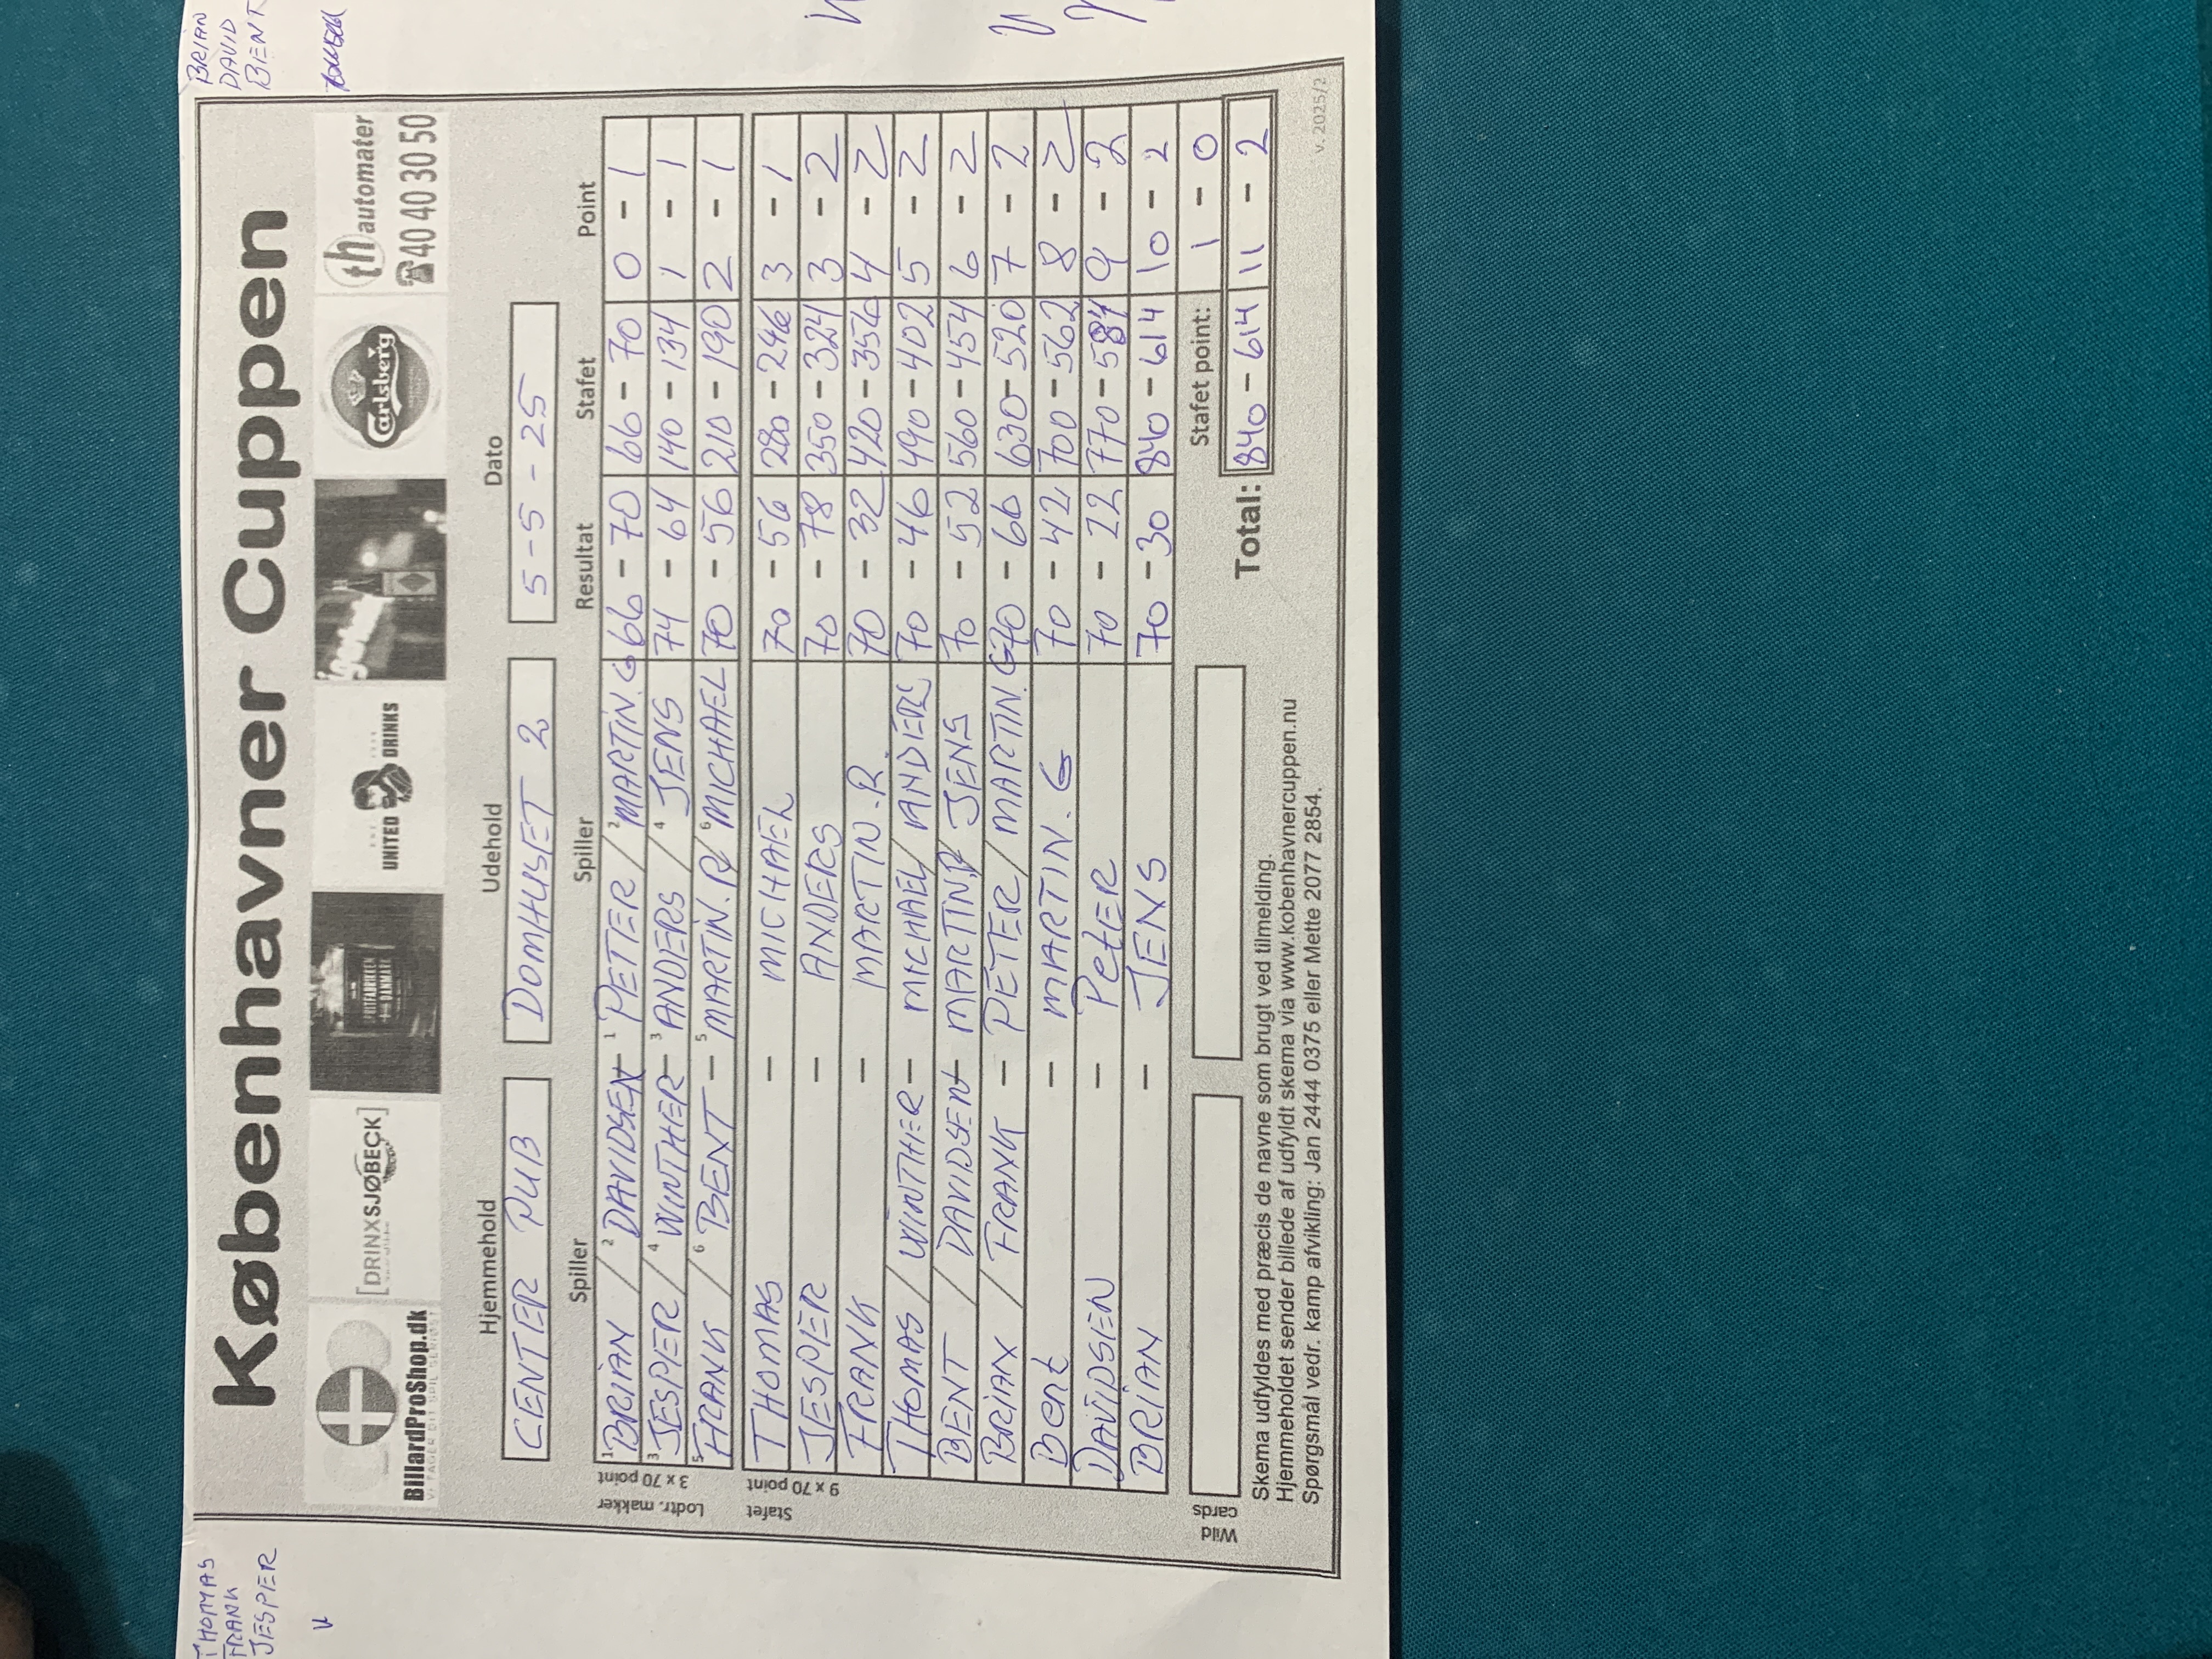 BRIAN
DAVID
BENT
THOMAS
FRANK
JESPER
Københavner Cuppen
BillardProShop.dk
VI TAGER DIT SPIL SERIØST
[DRINXSJØBECK]
SPRITFABRIKKEN
DANMARK
UNITED DRINKS
Carlsberg
th automater
☎40 40 30 50
Hjemmehold Udehold Dato
CENTER PUB DOMHUSET 2 5-5-25
Spiller Spiller Resultat Stafet Point
Lodtr. makker
3 x 70 point
1 BRIAN / 2 DAVIDSEN - 1 PETTER / 2 MARTIN. G 66 - 70 66 - 70 0 - 1
3 JESPER / 4 WINTHER - 3 ANDERS / 4 JENS 74 - 64 140 - 134 1 - 1
5 FRANK / 6 BENT - 5 MARTIN. R / 6 MICHAEL 70 - 56 210 - 190 2 - 1
Stafet
9 x 70 point
THOMAS - MICHAEL 70 - 56 280 - 246 3 - 1
JESPER - ANDERS 70 - 78 350 - 324 3 - 2
FRANK - MARTIN. R 70 - 32 420 - 356 4 - 2
THOMAS / WINTHER - MICHAEL / ANDERS 70 - 46 490 - 402 5 - 2
BENT / DAVIDSEN - MARTIN R / JENS 70 - 52 560 - 454 6 - 2
BRIAN / FRANK - PETTER / MARTIN. G 70 - 66 630 - 520 7 - 2
Bent - MARTIN. G 70 - 42 700 - 562 8 - 2
DAVIDSEN - PetER 70 - 22 770 - 584 9 - 2
BRIAN - JENS 70 - 30 840 - 614 10 - 2
Stafet point: 1 - 0
Wild
cards
Total: 840 - 614 11 - 2
Skema udfyldes med præcis de navne som brugt ved tilmelding.
Hjemmeholdet sender billede af udfyldt skema via www.kobenhavnercuppen.nu
Spørgsmål vedr. kamp afvikling: Jan 2444 0375 eller Mette 2077 2854.
v. 2025/2